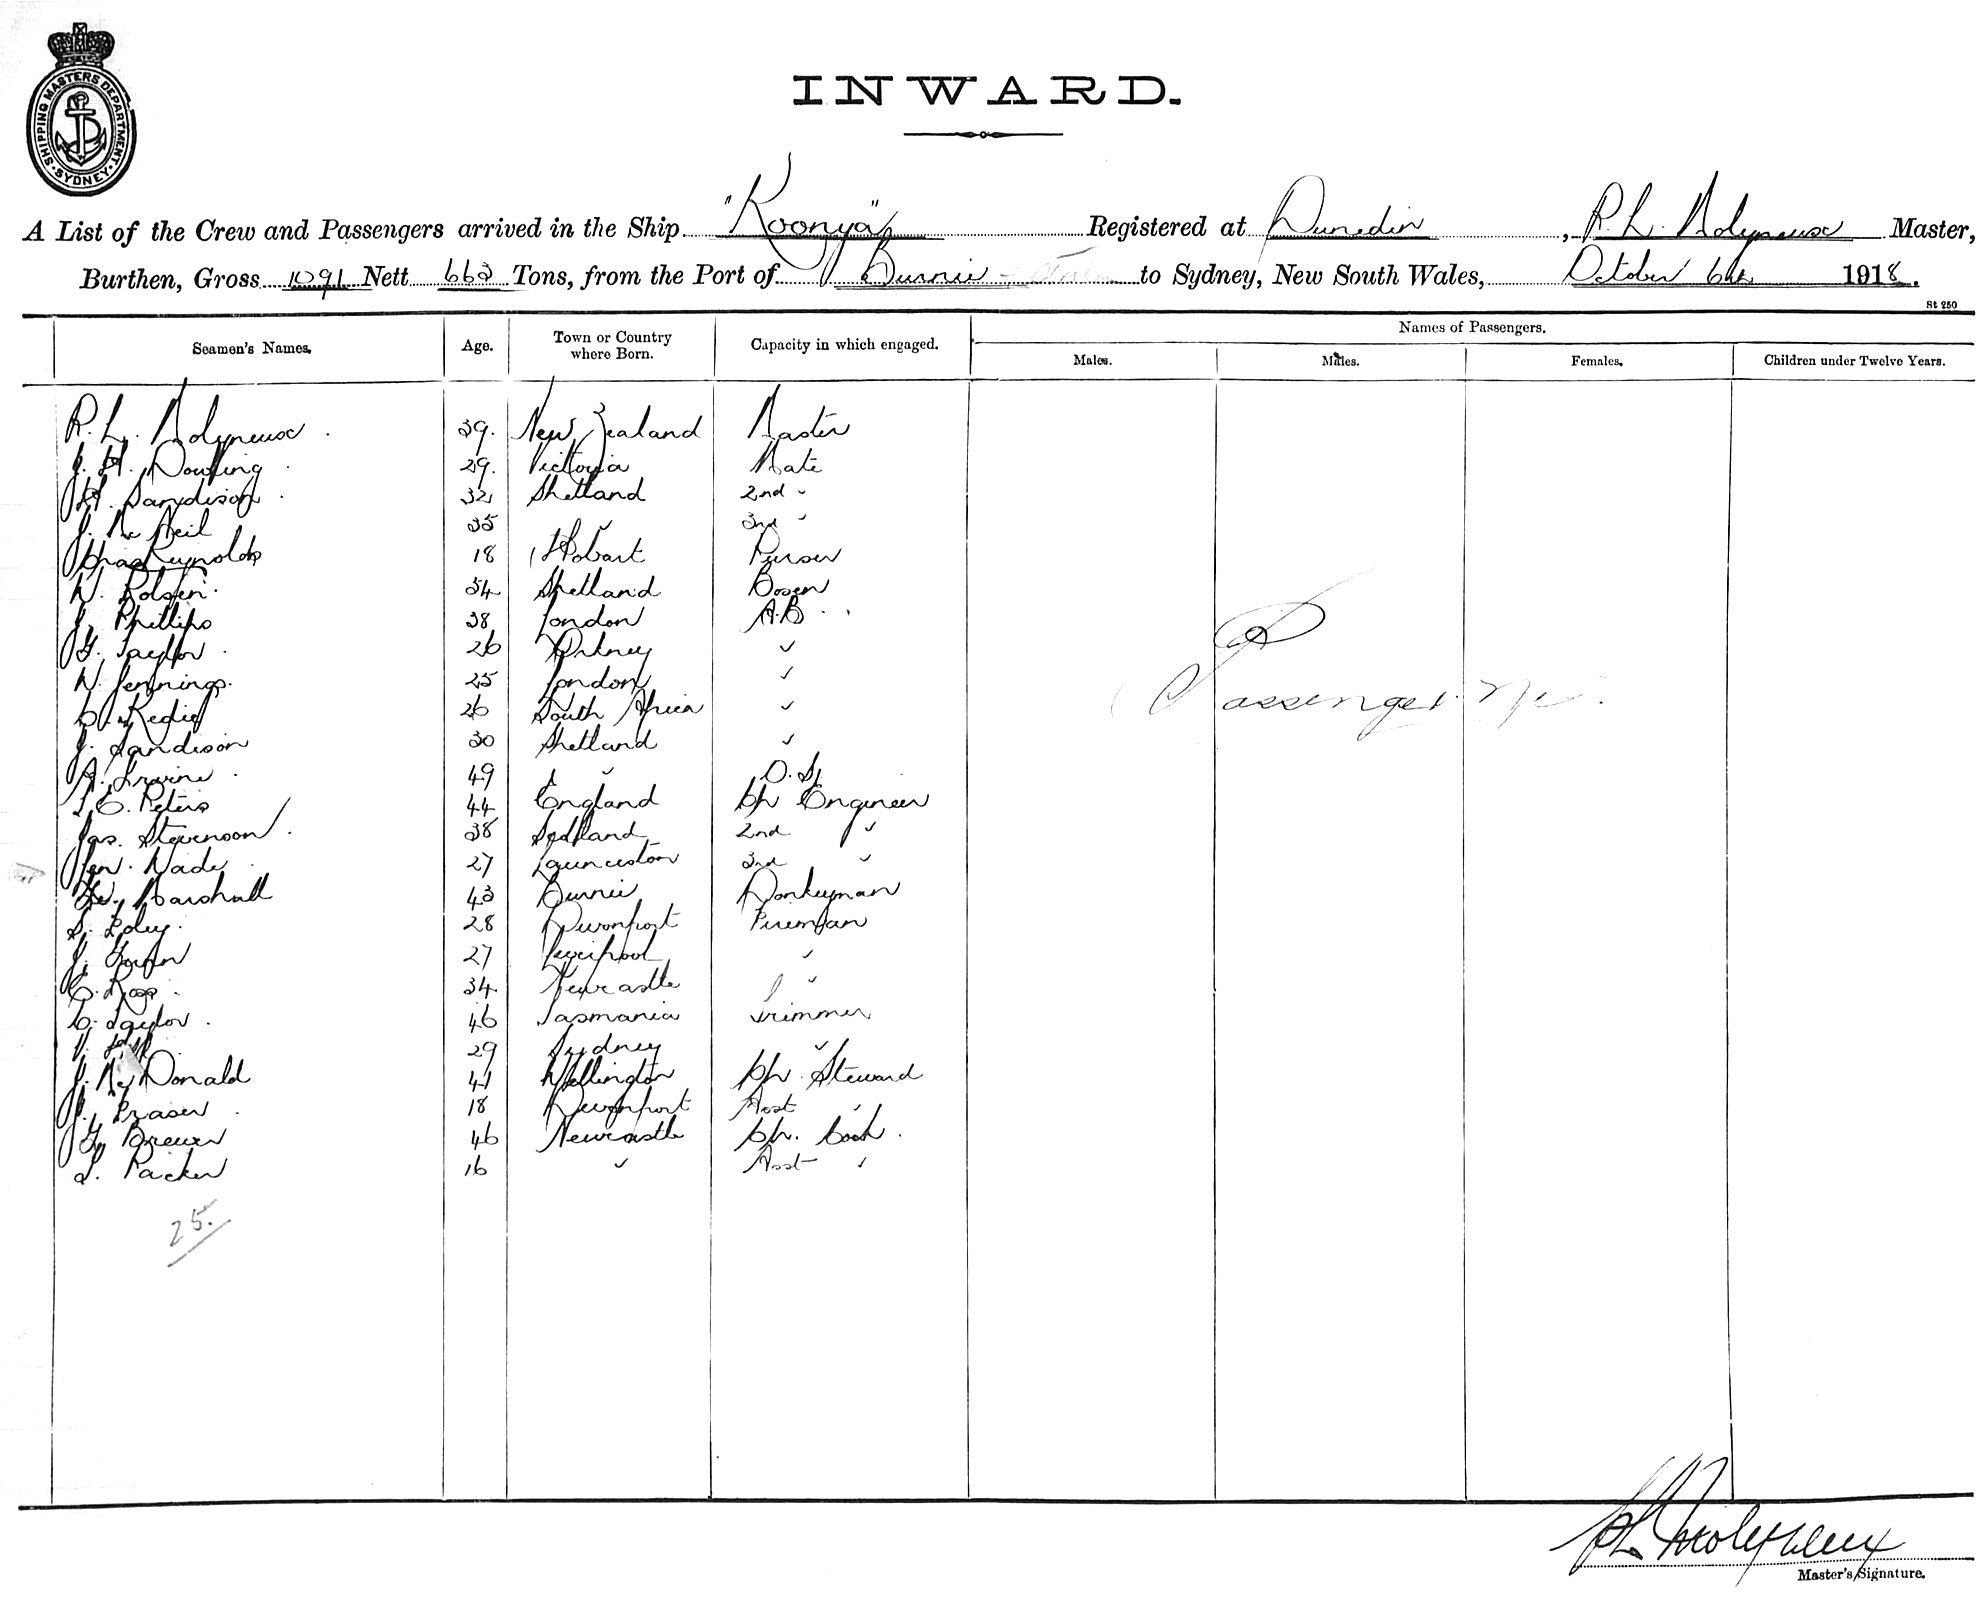 SHIPPING MASTERS DEPARTMENT · SYDNEY ·
INWARD.
A List of the Crew and Passengers arrived in the Ship "Koonya" Registered at Dunedin, R. L. Molyneux Master,
Burthen, Gross 1091 Nett 663 Tons, from the Port of Burnie to Sydney, New South Wales, October 6th 1918.
St 250
Seamen's Names. Age. Town or Country where Born. Capacity in which engaged. Names of Passengers.
Males. Males. Females. Children under Twelve Years.
R. L. Molyneux . 39. New Zealand Master
J. H. Dowling . 29. Victoria Mate
Sandison . 32 Shetland 2nd "
J. McNeil 35 " 3rd "
Chas Reynolds 18 Hobart Purser
W. 54 Shetland Bosen
J. Phillips 38 London A.B.
G. Taylor . 26 Orkney "
W. Jennings. 25 London "
26 South Africa "
J. Sandison 30 Shetland "
A. Irvine . 49 " O.S.
T. C. Peters 44 England Ch Engineer
Jas. Stevenson . 38 Scotland 2nd "
Wade . 27 Launceston 3rd "
Marshall 43 Burnie Donkeyman
S. 28 Devonport Fireman
J. 27 Liverpool "
C. Ross . 34 Newcastle "
C. Taylor . 46 Tasmania Trimmer
29 Sydney "
J. McDonald 41 Wellington Ch. Steward
J. Fraser . 18 Devonport Asst "
G. Brewer 46 Newcastle Ch. Cook .
L. Packer 16 " Asst "
25.
Passengers
R L Molyneux
Master's Signature.